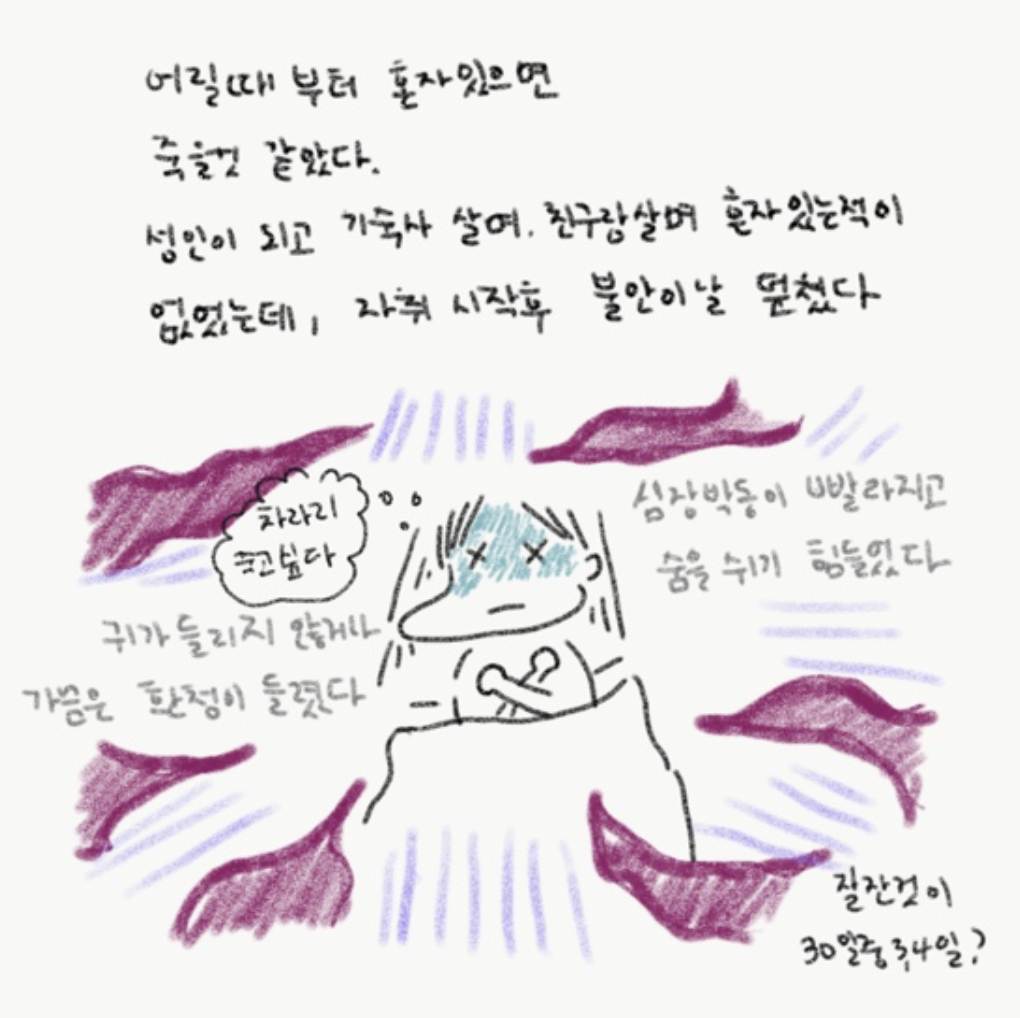 어릴때 부터 혼자있으면
죽을것 같았다.
성인이 되고 기숙사 살며, 친구랑살며 혼자있는적이
없었는데, 자취 시작후 불안이 날 덮쳤다
차라리
죽고싶다
심장박동이 빨라지고
숨을 쉬기 힘들었다
귀가 들리지 않거나
가끔은 환청이 들렸다
질잔것이
30일중 3,4일?